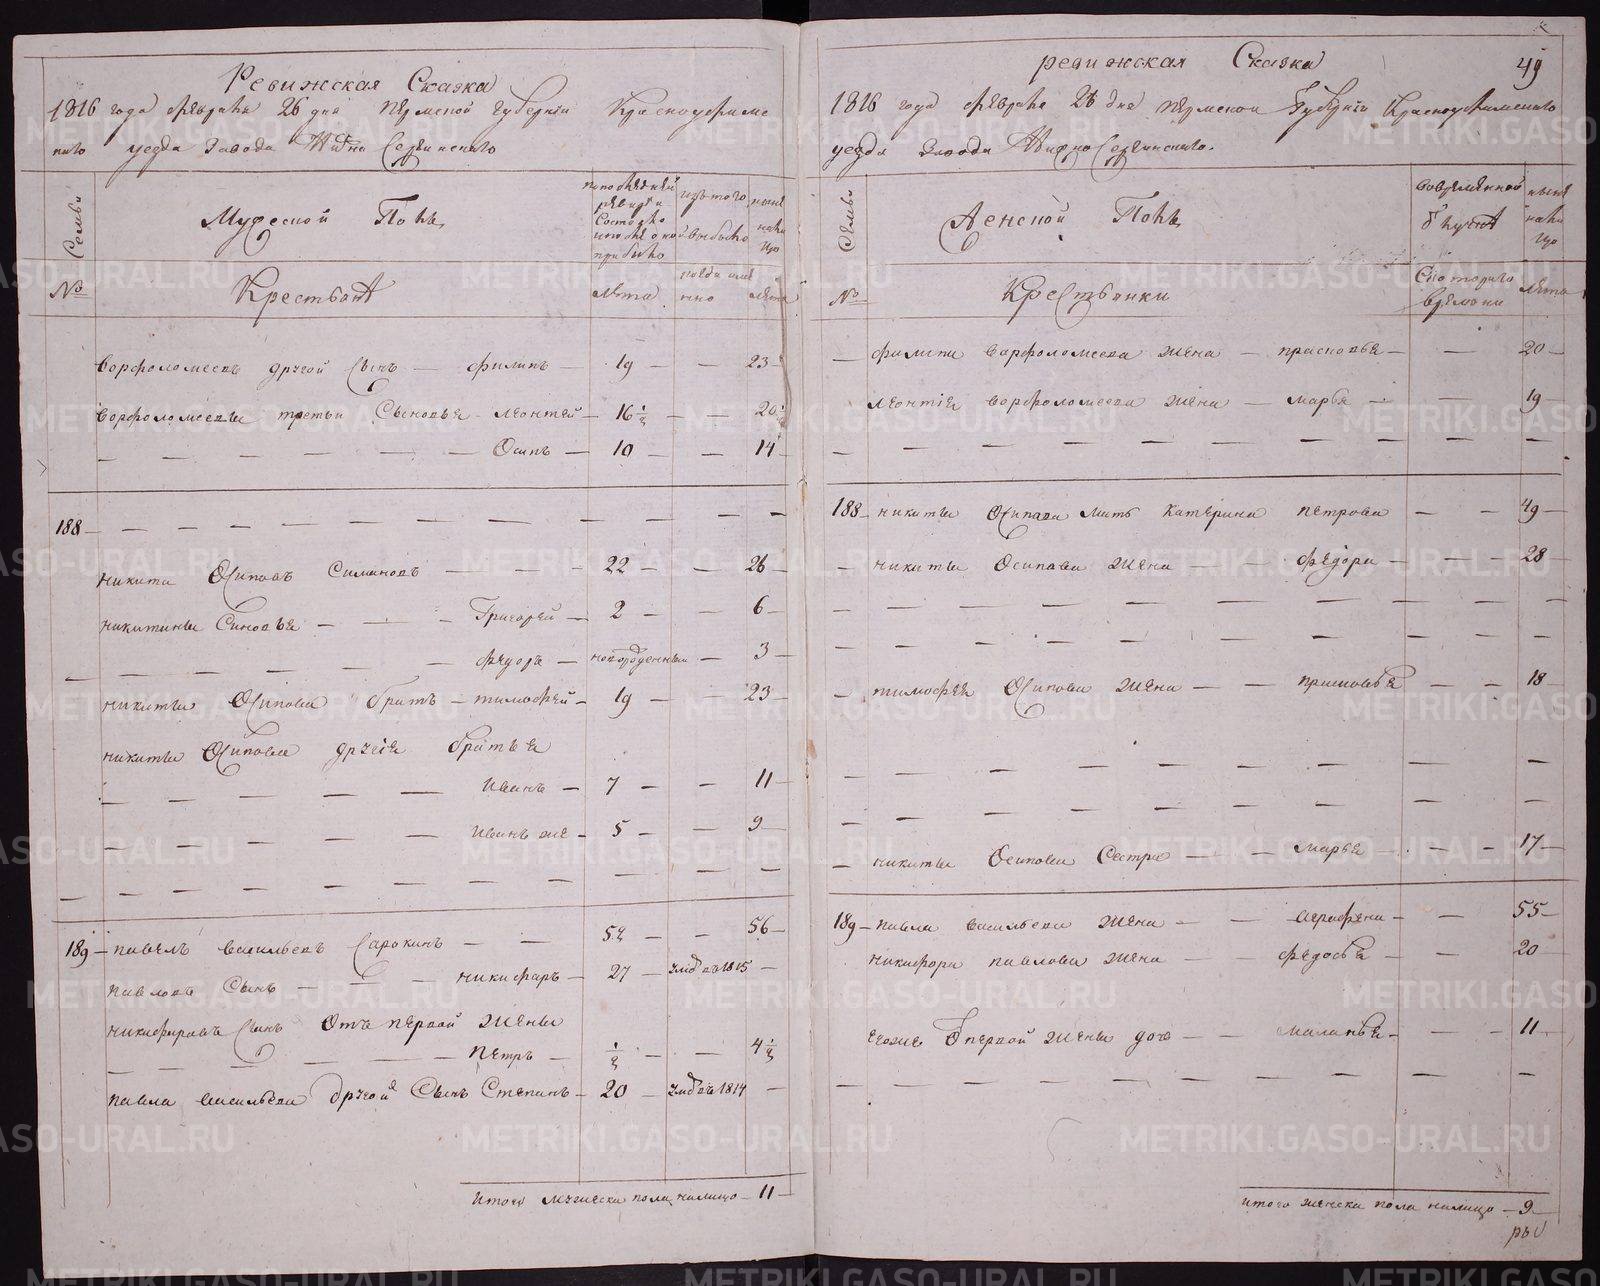 Ревижская Сказка
1816 года февраля 26 дня Пермской Губернии Красноуфимс
каго уезда Завода Нижно Сергинскаго
Семьи
Мужеской Полъ
по последней ревизги состояло и после оной прибыло
изъ того выбыло
ныне на лицо
№
Крестьянъ
лета
когда имянно
лета
ворфоломеевъ другой Сынъ — филипъ — 19 — — 23
ворфоломеевы третьи Сыновья — леонтей — 16 1/2 — — 20 1/2
Осипъ — 10 — — 14
188
никита Осиповъ Симановъ — — — 22 — — 26
никитины Синовья — — — Григорей — 2 — — 6
федоръ — новорожденный — 3
никиты Осипова братъ — тимофей — 19 — — 23
никиты Осипова другие братья
Иванъ — 7 — — 11
Иванъ же — 5 — — 9
189 — павелъ васильевъ Сарокинъ — — 52 — — 56
павловъ Сынъ — — — никифаръ — 27 — 1815 —
никифаровъ Сынъ Отъ первой жены
Петръ — 1/2 — — 4 1/2
павла васильева другой Сынъ Степанъ — 20 — 1814 —
итого мужеска пола налицо — 11 —
49
ревижская Сказка
1816 года февраля 26 дня пермской Губернги Красноуфимскаго
уезда Завода Нижно Сергинскаго.
Семьи
Женской Полъ
во временной отлучке
ныне на лицо
№
Крестьянки
С котораго времени
лета
филипа варфоломеева жена — прасковья — — 20
леонтия ворфоломеева жена — марья — — 19
188 — никиты Осипова мать катерина петрова — — 49
никиты Осипова жена — — федора — — — 28
тимофея Осипова жена — — прасковья — — 18
никиты Осипова Сестра — — марья — — — 17
189 — павла васильева жена — — аграфена — — 55
никифора павлова жена — — федосья — — 20
егоже Отпервой жены дочь — — маланья — — — 11
итого женска пола налицо — 9
METRIKI.GASO-URAL.RU